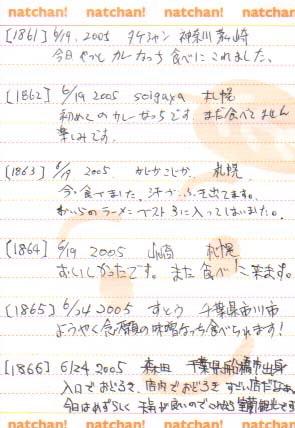 natchan! natchan! natchan! natchan!
[1861] 6/19. 2005 タケシャン 神奈川 茅ヶ崎
今日やっと カレなっち 食べにこれました。
[1862] 6/19 2005 seigaxa 札幌
初めてのカレーなっちです。まだ食べてません
楽しみです。
[1863] 6/19 2005. かじかこじか. 札幌.
今、食べました。汗がふき出てます。
わいらのラーメンベスト3に入ってしまいました。
[1864] 6/19 2005 山崎 札幌
おいしかったです。また食べに来ます。
[1865] 6/24 2005 すとう 千葉県市川市
ようやく念願の味噌なっち食べられます!
[1866] 6/24 2005 森田 千葉県船橋市出身
入口でおどろき、店内でおどろき すごい店だなぁ。
今日はめずらしく 天気が良いので
natchan! natchan! natchan! natchan!